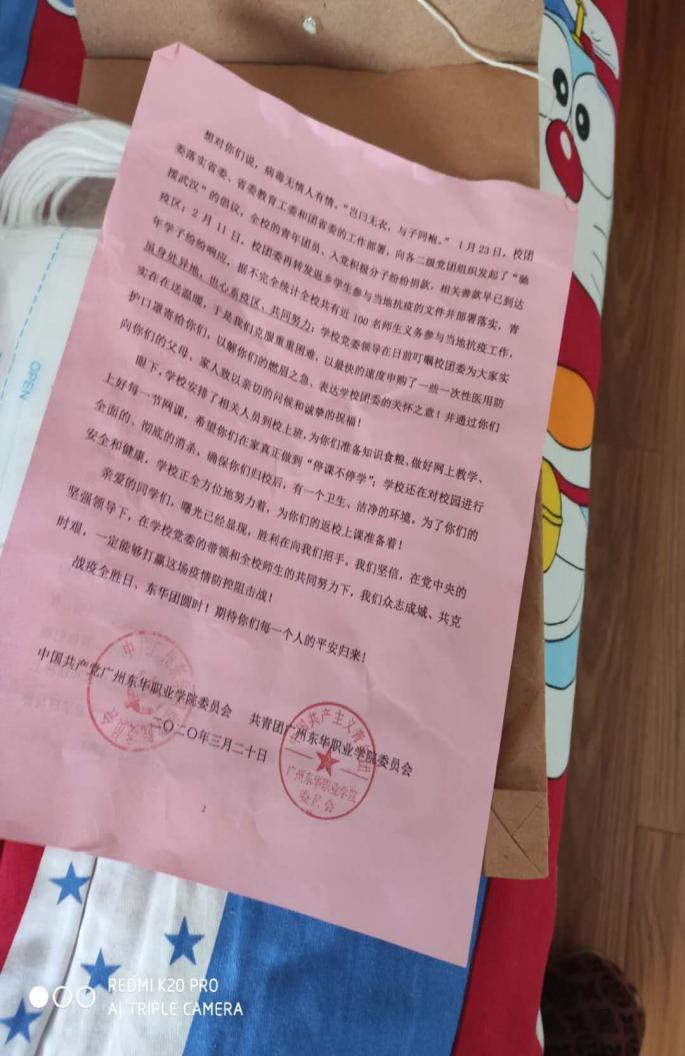 想对你们说，病毒无情人有情。“岂曰无衣，与子同袍。” 1月23日，校团
委落实省委、省委教育工委和团省委的工作部署，向各二级党团组织发起了“驰
援武汉”的倡议，全校的青年团员、入党积极分子纷纷捐款，相关善款早已到达
疫区；2月11日，校团委再转发返乡学生参与当地抗疫的文件并部署落实，青
年学子纷纷响应，据不完全统计全校共有近100名师生义务参与当地抗疫工作，
虽身处异地，也心系疫区、共同努力；学校党委领导在日前叮嘱校团委为大家实
实在在送温暖，于是我们克服重重困难，以最快的速度申购了一些一次性医用防
护口罩寄给你们，以解你们的燃眉之急、表达学校团委的关怀之意！并通过你们
向你们的父母、家人致以亲切的问候和诚挚的祝福！
眼下，学校安排了相关人员到校上班，为你们准备知识食粮、做好网上教学、
上好每一节网课，希望你们在家真正做到“停课不停学”；学校还在对校园进行
全面的、彻底的消杀，确保你们归校后，有一个卫生、洁净的环境。为了你们的
安全和健康，学校正全方位地努力着，为你们的返校上课准备着！
亲爱的同学们，曙光已经显现，胜利在向我们招手。我们坚信，在党中央的
坚强领导下，在学校党委的带领和全校师生的共同努力下，我们众志成城、共克
时艰，一定能够打赢这场疫情防控阻击战！
战疫全胜日、东华团圆时！期待你们每一个人的平安归来！
中国共产党广州东华职业学院委员会 共青团广州东华职业学院委员会
二〇二〇年三月二十日
中国共产主义青年团
广州东华职业学院
委员会
2
OPEN
REDMI K20 PRO
AI TRIPLE CAMERA